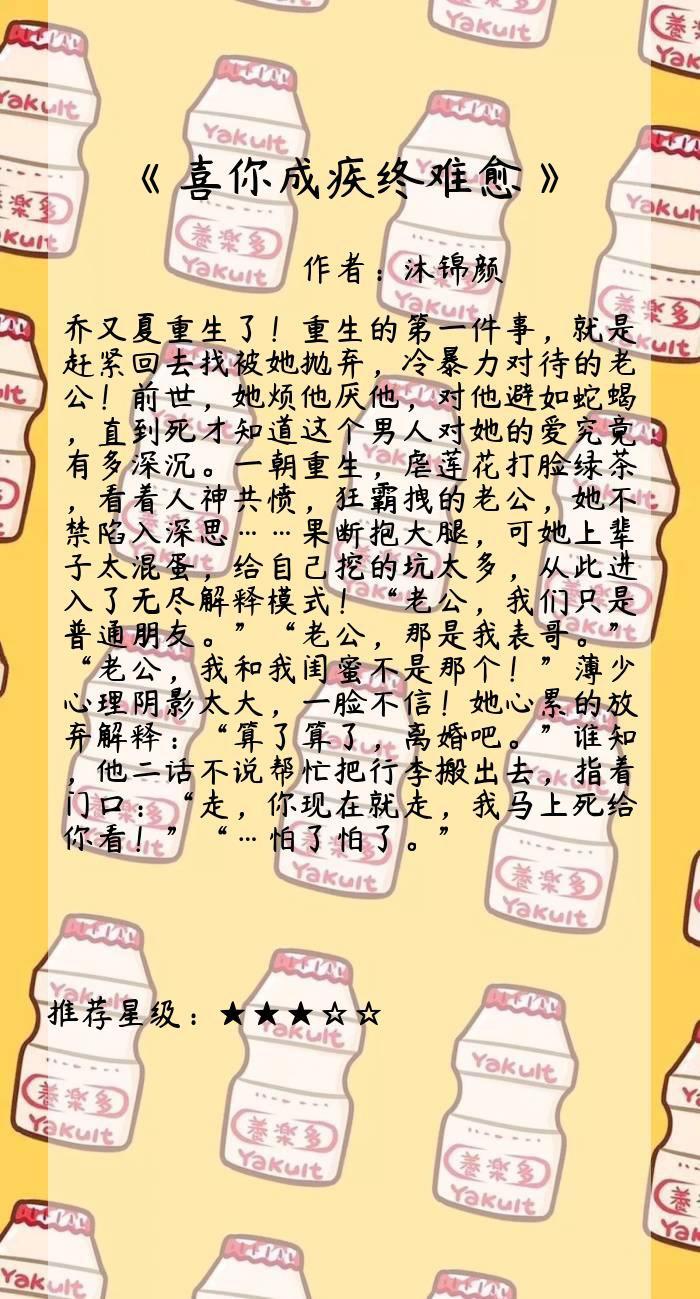 《喜你成疾终难愈》
作者：沐锦颜
乔又夏重生了！重生的第一件事，就是
赶紧回去找被她抛弃，冷暴力对待的老
公！前世，她烦他厌他，对他避如蛇蝎
，直到死才知道这个男人对她的爱究竟
有多深沉。一朝重生，虐莲花打脸绿茶
，看着人神共愤，狂霸拽的老公，她不
禁陷入深思……果断抱大腿，可她上辈
子太混蛋，给自己挖的坑太多，从此进
入了无尽解释模式！“老公，我们只是
普通朋友。”“老公，那是我表哥。”
“老公，我和我闺蜜不是那个！”薄少
心理阴影太大，一脸不信！她心累的放
弃解释：“算了算了，离婚吧。”谁知
，他二话不说帮忙把行李搬出去，指着
门口：“走，你现在就走，我马上死给
你看！”“…怕了怕了。”
推荐星级：★★★☆☆
Yakult
养楽多
Yakult